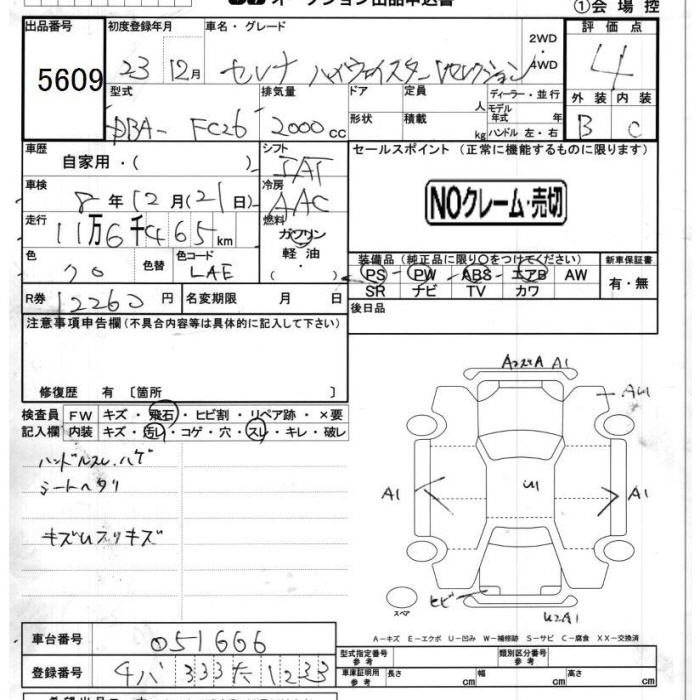 オークション出品申込書
①会場控
出品番号 初度登録年月 車名・グレード 2WD 評価点
5609 23 12月 セレナ ハイウェイスターVセレクション ・4WD 4
型式 排気量 ドア 定員 ディーラー・並行 外装 内装
DBA-FC26 2000cc 人 モデル年式 年 B C
形状 積載 kg ハンドル 左・右
車歴 自家用・( ) シフト IAT セールスポイント (正常に機能するものに限ります)
車検 8年12月(21日) 冷房 AAC NOクレーム・売切
走行 11万6千465km 燃料 ガソリン
軽油・
( )
色 クロ 色替 色コード LAE
装備品(純正品に限り○をつけてください) 新車保証書
PS - PW - ABS - エアB AW 有・無
SR ナビ TV カワ
R券 12260円 名変期限 月 日 後日品
注意事項申告欄(不具合内容等は具体的に記入して下さい)
修復歴 有 〔箇所 〕
検査員 FW キズ・飛石・ヒビ割・リペア跡・×要
記入欄 内装 キズ・汚レ・コゲ・穴・スレ・キレ・破レ
ハンドルスレ、ハゲ
シートヘタリ
キズUスリキズ
A2スリA A1
AU1
A1 U1 A1
ヒビ
U2A1
スペア
A-キズ E-エクボ U-凹み W-補修跡 S-サビ C-腐食 XX-交換済
車台番号 051666
登録番号 333 1233
型式指定番号 参考 類別区分番号 参考
車庫証明用 参考 長さ cm 幅 cm 高さ cm